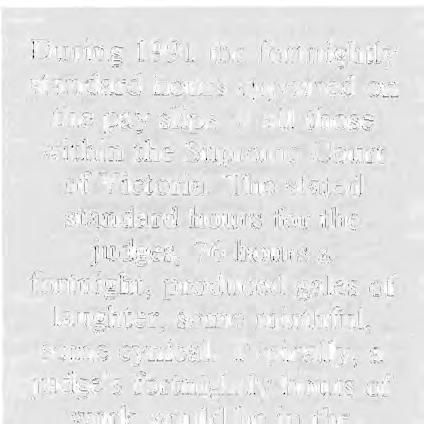 During 1991 the fortnightly
standard hours appeared on
the pay slips of all those
within the Supreme Court
of Victoria. The stated
standard hours for the
judges, 76 hours a
fortnight, produced gales of
laughter, some mirthful,
some cynical. Typically, a
judge's fortnightly hours of
work would be in the